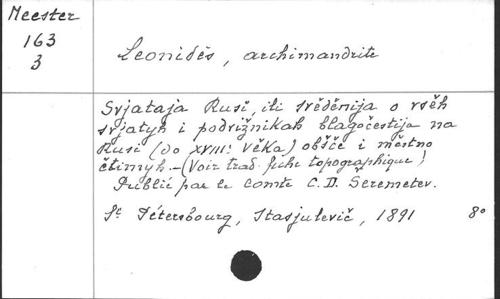 Meester
163
3
Leonidés, archimandrite
Svjataja Rusi, ili svěděnija o vsěh
svjatyh i podvižnikah blagočestija na
Rusi (do XVIII: věka) obšče i městno
čtimyh. - (Voir trad. fiche topographique)
Publié par le comte C. D. Šeremetev.
St Pétersbourg, Stasjulevič, 1891 8o